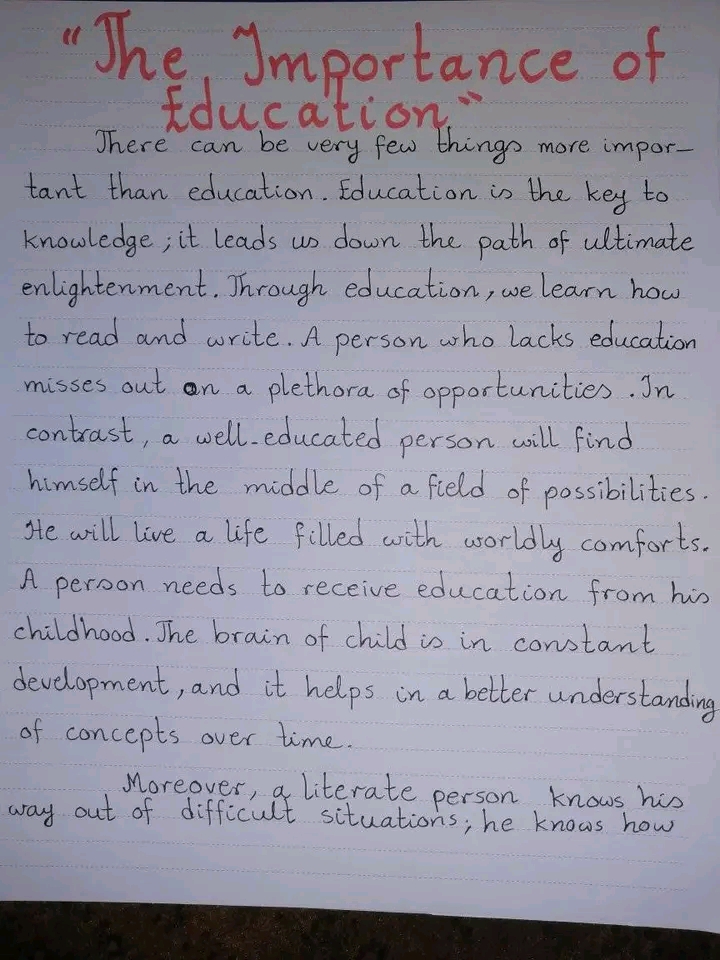 "The Importance of
Education"
There can be very few things more impor-
tant than education. Education is the key to
knowledge ; it leads us down the path of ultimate
enlightenment. Through education, we learn how
to read and write. A person who lacks education
misses out on a plethora of opportunities . In
contrast, a well-educated person will find
himself in the middle of a field of possibilities.
He will live a life filled with worldly comforts.
A person needs to receive education from his
childhood. The brain of child is in constant
development, and it helps in a better understanding
of concepts over time.
Moreover, a literate person knows his
way out of difficult situations; he knows how